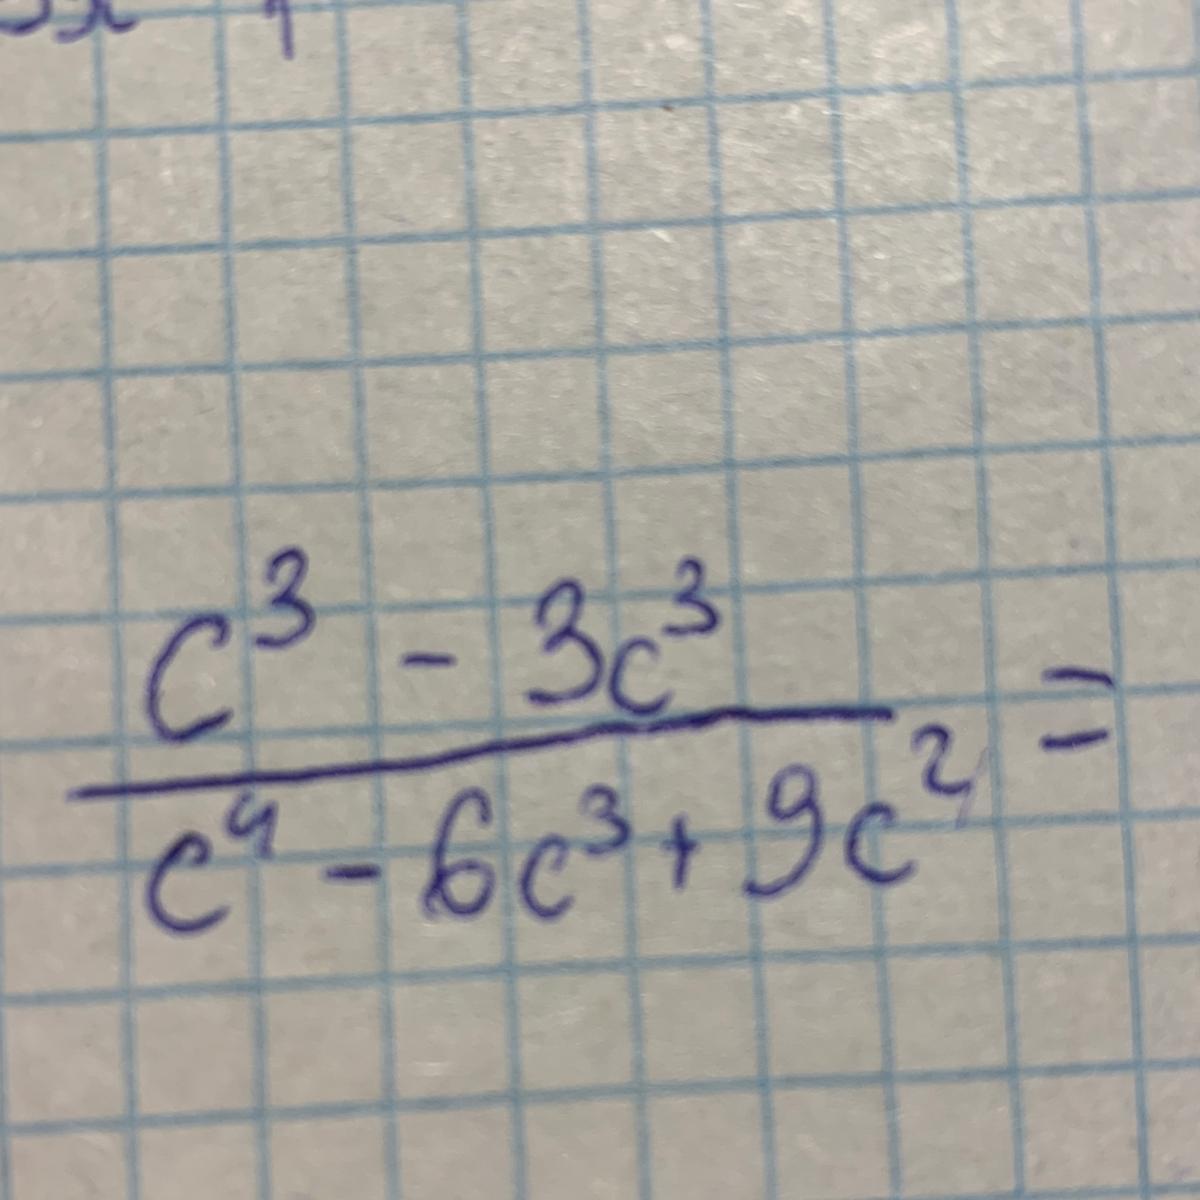 c³ - 3c³
c⁴ - 6c³ + 9c² =